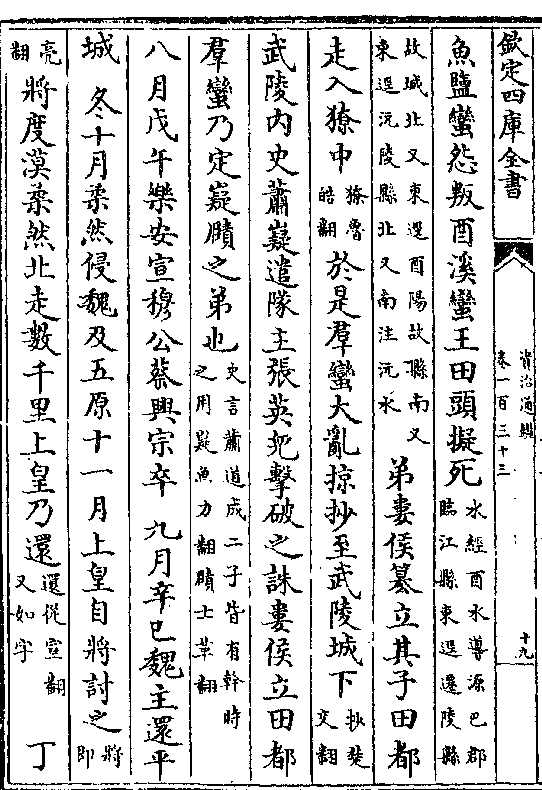 欽定四庫全書
資治通鑑
卷一百三十三
十九
魚鹽蠻怨叛酉溪蠻王田頭擬死水經酉水導源巴郡臨江縣東逕遷陵縣
故城北又東逕酉陽故縣南又東逕沅陵縣北又南注沅水弟婁侯篡立其子田都
走入獠中獠魯皓翻於是羣蠻大亂掠抄至武陵城下抄楚交翻
武陵内史蕭嶷遣隊主張英兒擊破之誅婁侯立田都
羣蠻乃定嶷賾之弟也史言蕭道成二子皆有幹時之用嶷魚力翻賾士革翻
八月戊午樂安宣穆公蔡興宗卒 九月辛巳魏主還平
城 冬十月柔然侵魏及五原十一月上皇自將討之將即
亮翻將度漠柔然北走數千里上皇乃還還從宣翻又如字 丁